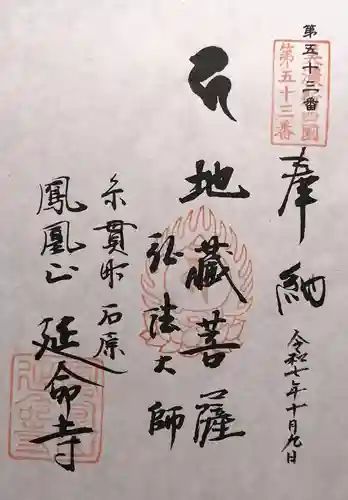 第五十三番
美濃新四國
第五十三番
奉納
令和七年十月九日
地蔵菩薩
弘法大師
糸貫町石原
鳳凰山
延命寺